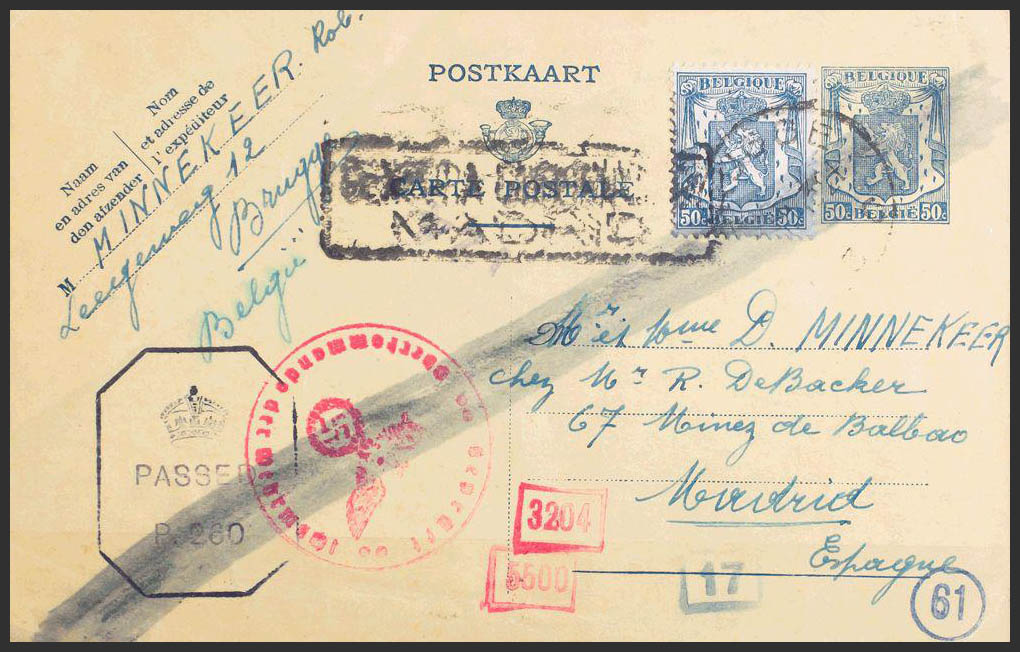 MINNEKEER. Rob.
Nom
et adresse de
l'expéditeur
Naam
en adres van
den afzender
M
12
Brugge
België
POSTKAART
CARTE POSTALE
MADRID
BELGIQUE
50c BELGIË 50c
BELGIQUE
50c BELGIË 50c
Mr et Mme D. MINNEKEER
chez Mr R. DeBacker
67 Minez de Balbao
Madrid
Espagne
PASSED
P. 260
Oberkommando der Wehrmacht
Geprüft
3204
5500
17
61